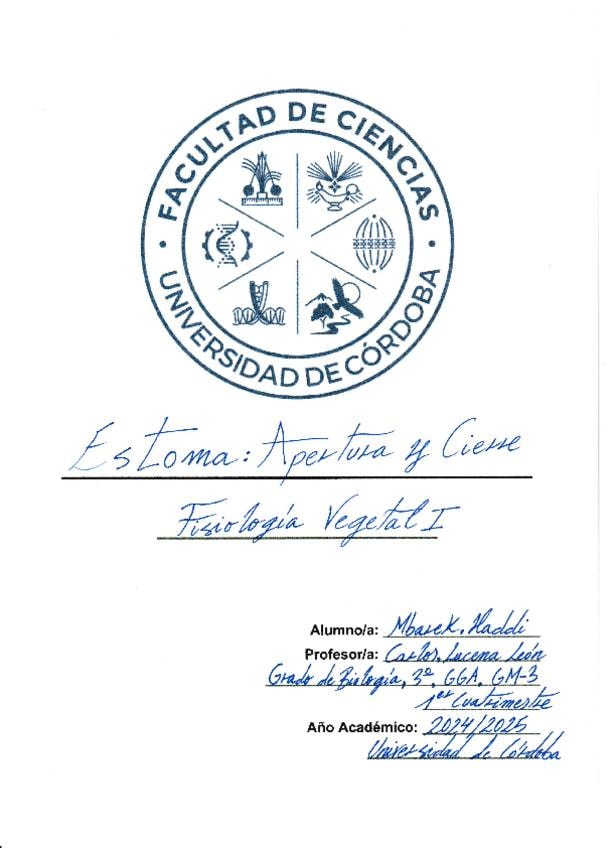 FACULTAD DE CIENCIAS
UNIVERSIDAD DE CÓRDOBA
Estoma: Apertura y Cierre
Fisiología Vegetal I
Alumno/a: Mbarek, Haddi
Profesor/a: Carlos, Lucena León
Grado de Biología, 3º, GGA, GM-3
1er Cuatrimestre
Año Académico: 2024/2025
Universidad de Córdoba